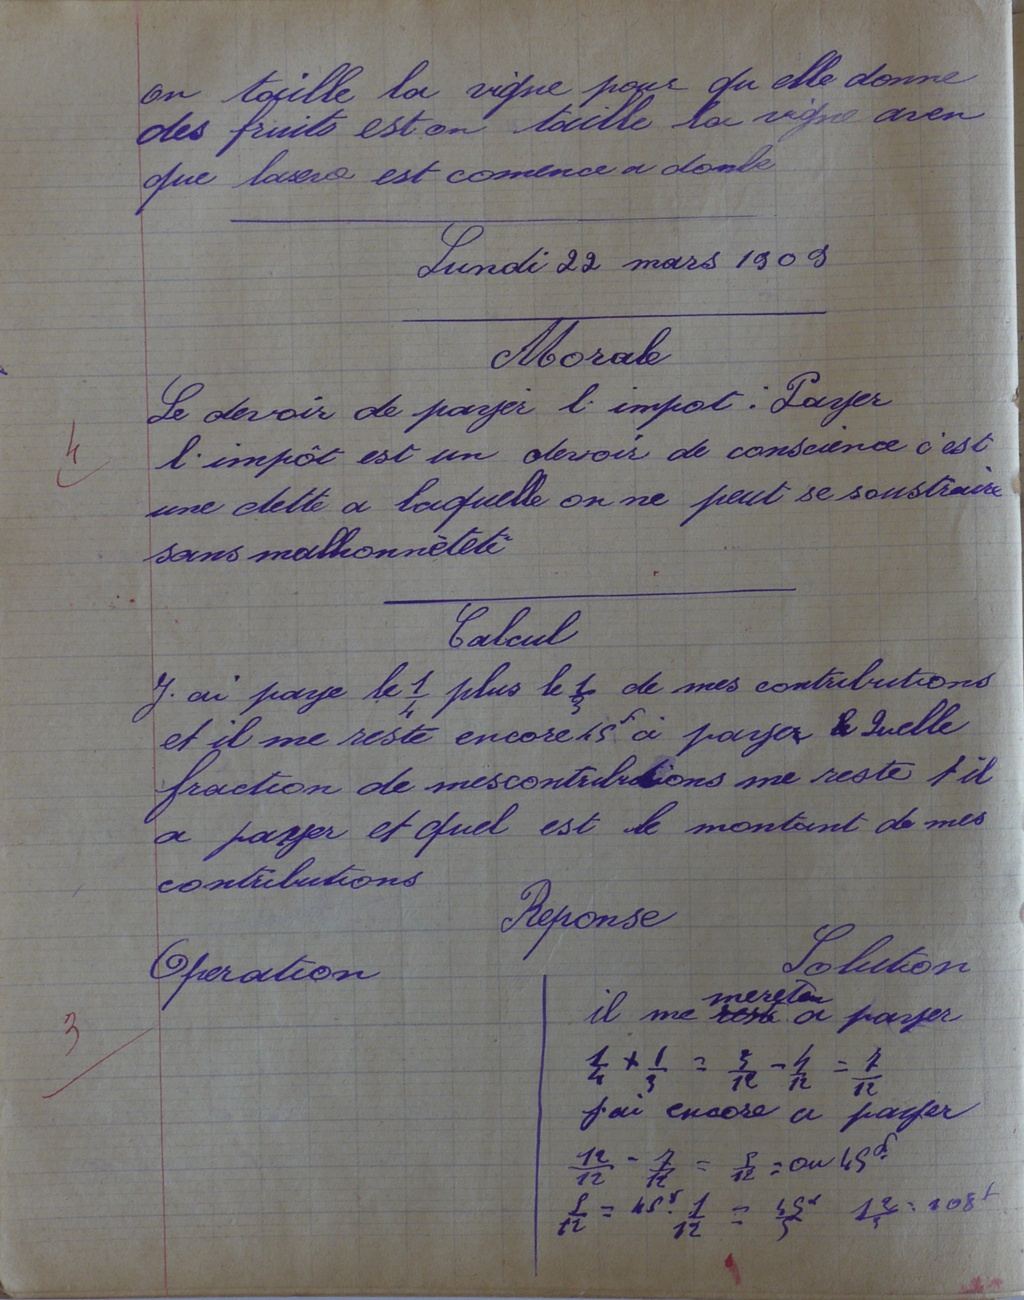 on taille la vigne pour qu elle donne
des fruits est on taille la vigne aven
que est comence a
Lundi 22 mars 1909
Morale
Le devoir de payer l'impot : Payer
l'impôt est un devoir de conscience c'est
une dette a laquelle on ne peut se soustraire
sans malhonnêteté
Calcul
J'ai paye le 1/4 plus le 1/3 de mes contributions
et il me reste encore 45f à payer Quelle
fraction de mes contributions me reste t il
a payer et quel est le montant de mes
contributions
Reponse
Operation
Solution
il me a payer
1/4 + 1/3 = 3/12 - 4/12 = 7/12
j'ai encore a payer
12/12 - 7/12 = 5/12 = ou 45f
5/12 = 45f 1/12 = 45f/5 12/5 = 108f
4
3